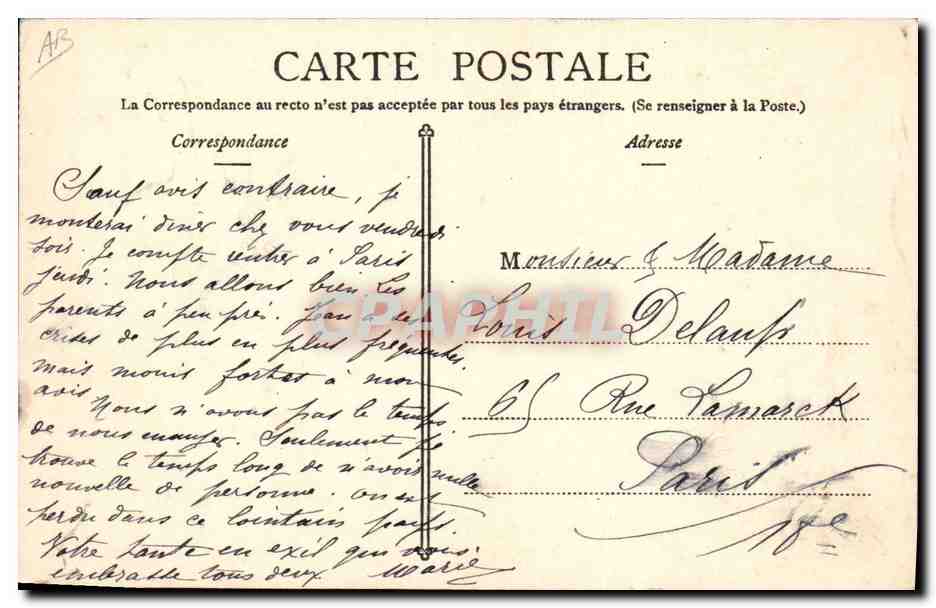 AB
CARTE POSTALE
La Correspondance au recto n'est pas acceptée par tous les pays étrangers. (Se renseigner à la Poste.)
Correspondance
Adresse
Sauf avis contraire, je
monterai diner chez vous vendredi
soir. Je compte rentrer à Paris
jeudi. Nous allons bien les
parents à peu près. Jean a ses
crises de plus en plus fréquentes,
mais moins fortes à mon
avis.
Nous n'avons pas le temps
de nous manger. Seulement je
trouve le temps long de n'avoir nulle
nouvelle de personne. on est
perdu dans ce lointain pays
Votre tante en exil qui vous
embrasse tous deux Marie
Monsieur & Madame
Louis
65 Rue Lamarck
Paris
18e
CPAPHIL